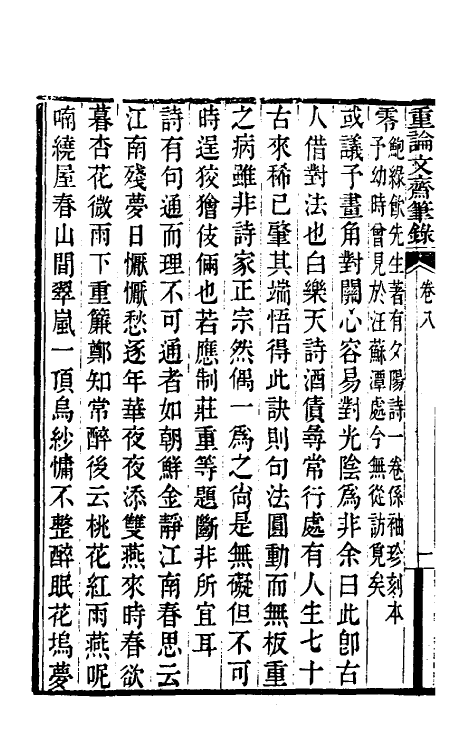 重論文齋筆錄 卷八 一
零 鮑綠飲先生著有夕陽詩一卷係袖珍刻本
予幼時曾見於汪蘇潭處今無從訪覓矣
或議予畫角對關心容易對光陰爲非余曰此卽古
人借對法也白樂天詩酒債尋常行處有人生七十
古來稀已肇其端悟得此訣則句法圓動而無板重
之病雖非詩家正宗然偶一爲之尙是無礙但不可
時逞狡獪伎倆也若應制莊重等題斷非所宜耳
詩有句通而理不可通者如朝鮮金靜江南春思云
江南殘夢日懨懨愁逐年華夜夜添雙燕來時春欲
暮杏花微雨下重簾鄭知常醉後云桃花紅雨燕呢
喃繞屋春山間翠嵐一頂烏紗慵不整醉眠花塢夢